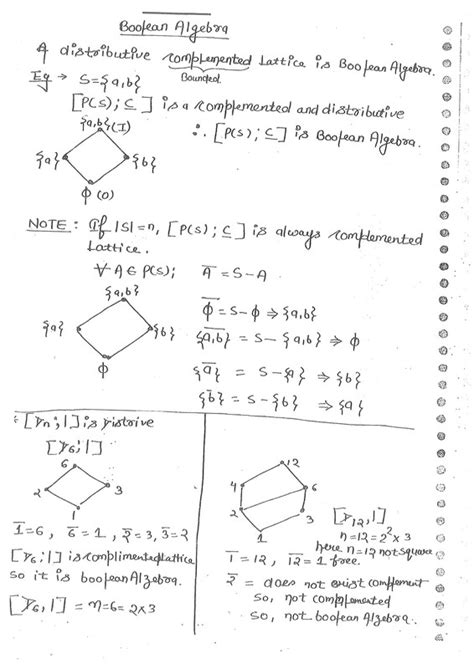 Boolean Algebra
A distributive complemented Lattice is Boolean Algebra.
Bounded.
Eg → S={a,b}
[P(S); ⊆] is a complemented and distributive
{a,b}(I)
∴ [P(S); ⊆] is Boolean Algebra.
{a}
{b}
ϕ (0)
NOTE: If |S|=n, [P(S); ⊆] is always complemented
Lattice.
∀ A ∈ P(S); A̅ = S-A
{a,b}
{a}
{b}
ϕ
ϕ̅ = S-ϕ ⇒ {a,b}
{a,b}̅ = S-{a,b} ⇒ ϕ
{a}̅ = S-{a} ⇒ {b}
{b}̅ = S-{b} ⇒ {a}
[Dn;|] is distrive
[D6;|]
6
2
3
1
1̅=6, 6̅=1, 2̅=3, 3̅=2
[D6;|] is complimented lattice
so it is boolean Algebra.
[D6,|] = n=6=2×3
12
4
6
2
3
1
[D12,|]
n=12=2²×3
here n=12 not square
free.
1̅=12, 12̅=1
2̅ = does not exist complement
so, not complemented
so, not boolean Algebra.